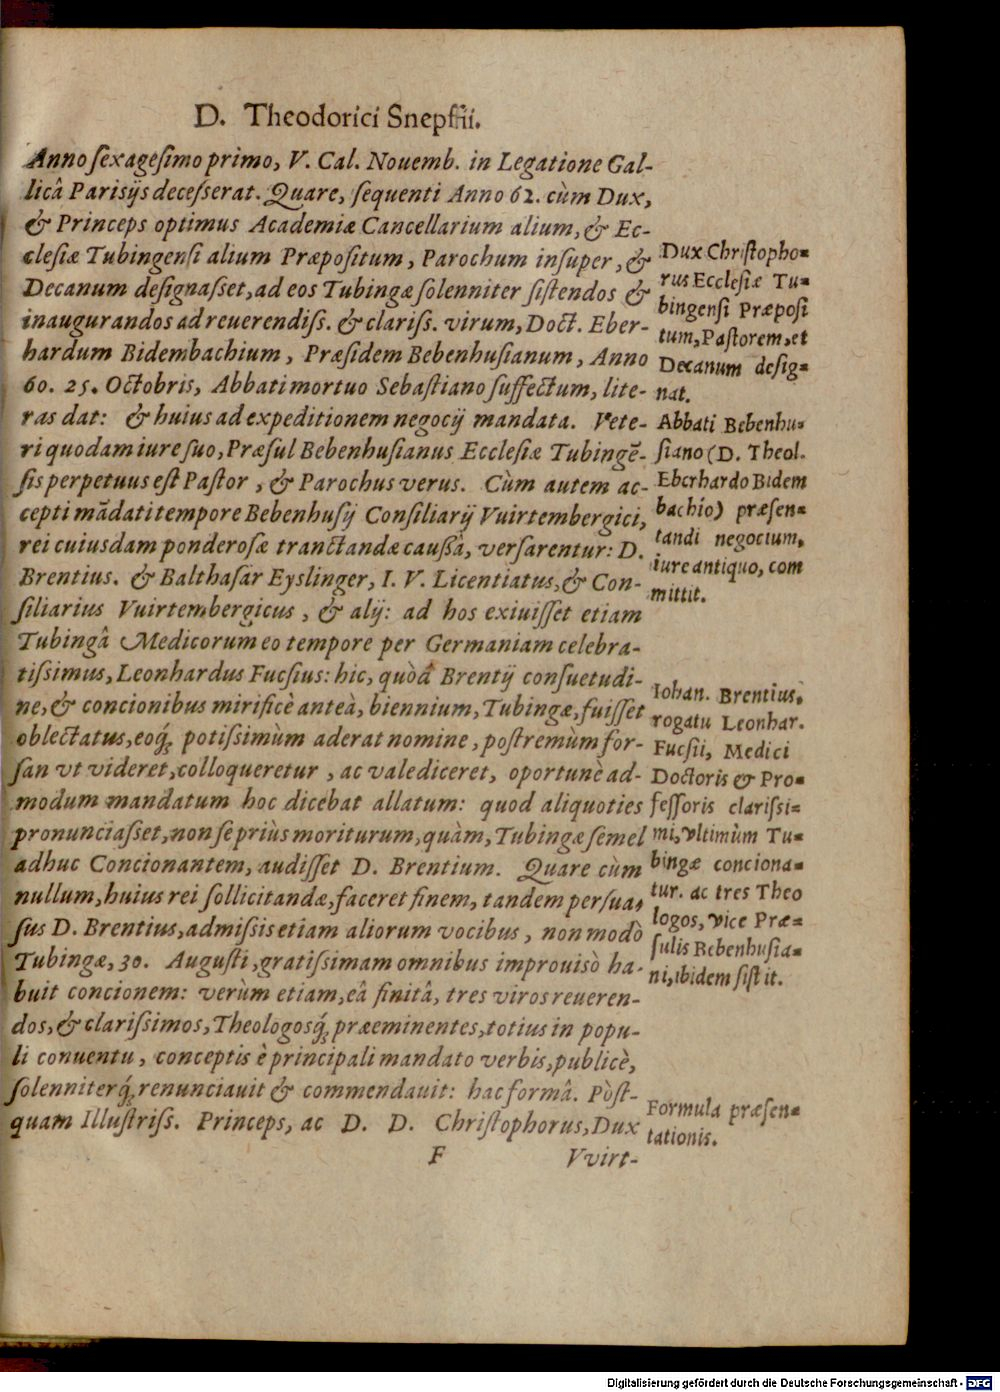 D. Theodorici Snepffii.
Anno ſexageſimo primo, V. Cal. Nouemb. in Legatione Gal-
licâ Pariſijs deceſſerat. Quare, ſequenti Anno 62. cùm Dux,
& Princeps optimus Academiæ Cancellarium alium, & Ec-
cleſiæ Tubingenſi alium Præpoſitum, Parochum inſuper, &
Decanum deſignaſſet, ad eos Tubingæ ſolenniter ſiſtendos &
inaugurandos ad reuerendiſſ. & clariſſ. virum, Doct. Eber-
hardum Bidembachium, Præſidem Bebenhuſianum, Anno
60. 25. Octobris, Abbati mortuo Sebaſtiano ſuffectum, lite-
ras dat: & huius ad expeditionem negocij mandata. Vete-
ri quodam iure ſuo, Præſul Bebenhuſianus Eccleſiæ Tubingẽ-
ſis perpetuus eſt Paſtor, & Parochus verus. Cùm autem ac-
cepti mãdati tempore Bebenhuſij Conſiliarij Vuirtembergici,
rei cuiusdam ponderoſæ tranctandæ cauſſâ, verſarentur: D.
Brentius. & Balthaſar Eyslinger, I. V. Licentiatus, & Con-
ſiliarius Vuirtembergicus, & alij: ad hos exiuiſſet etiam
Tubingâ Medicorum eo tempore per Germaniam celebra-
tiſsimus, Leonhardus Fucſius: hic, quòd Brentij conſuetudi-
ne, & concionibus mirificè anteà, biennium, Tubingæ, fuiſſet
oblectatus, eoq́; potiſsimùm aderat nomine, poſtremùm for-
ſan vt videret, colloqueretur, ac valediceret, oportunè ad-
modum mandatum hoc dicebat allatum: quod aliquoties
pronunciaſſet, non ſe priùs moriturum, quàm, Tubingæ ſemel
adhuc Concionantem, audiſſet D. Brentium. Quare cùm
nullum, huius rei ſollicitandæ, faceret finem, tandem perſua-
ſus D. Brentius, admiſsis etiam aliorum vocibus, non modò
Tubingæ, 30. Auguſti, gratiſsimam omnibus improuisò ha-
buit concionem: verùm etiam, eâ finitâ, tres viros reueren-
dos, & clariſsimos, Theologosq́; præeminentes, totius in popu-
li conuentu, conceptis è principali mandato verbis, publicè,
ſolenniterq́; renunciauit & commendauit: hac formâ. Pòſt-
quam Illuſtriſs. Princeps, ac D. D. Chriſtophorus, Dux
F Vvirt-
Dux Chriſtopho-
rus Eccleſiæ Tu-
bingenſi Præpoſi
tum, Paſtorem, et
Decanum deſig-
nat.
Abbati Bebenhu-
ſiano (D. Theol.
Eberhardo Bidem
bachio) præſen-
tandi negocium,
iure antiquo, com
mittit.
Iohan. Brentius,
rogatu Leonhar.
Fucſii, Medici
Doctoris & Pro-
feſſoris clariſsi-
mi, vltimùm Tu-
bingæ conciona-
tur. ac tres Theo
logos, vice Præ-
ſulis Bebenhuſia-
ni, ibidem ſiſtit.
Formula præſen-
tationis.
Digitalisierung gefördert durch die Deutsche Forschungsgemeinschaft - DFG